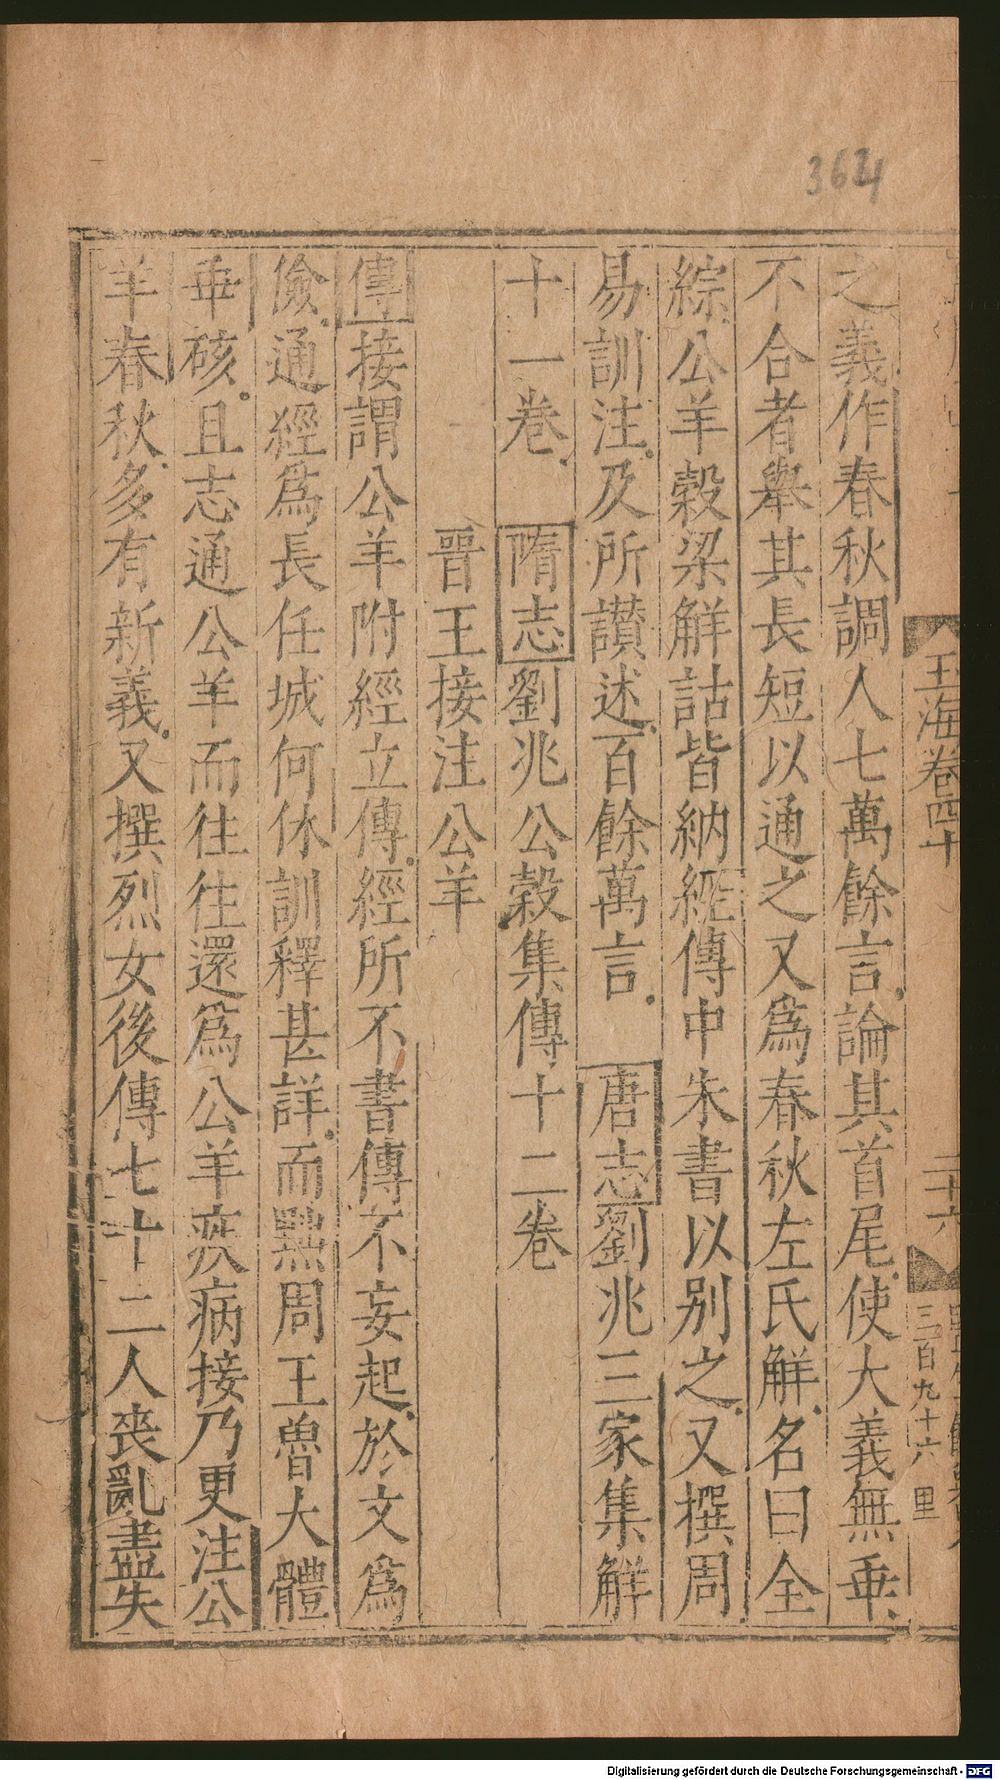 3624
玉海卷四十
二十六
三百九十六 里
之義作春秋調人七萬餘言論其首尾使大義無乖
不合者舉其長短以通之又爲春秋左氏解名曰全
綜公羊榖梁解詁皆納經傳中朱書以別之又撰周
易訓注及所讃述百餘萬言 唐志劉兆三家集解
十一卷 隋志劉兆公榖集傳十二卷
晉王接注公羊
傳接謂公羊附經立傳經所不書傳不妄起於文爲
儉通經爲長任城何休訓釋甚詳而黜周王魯大體
乖硋且志通公羊而往往還爲公羊疾病接乃更注公
羊春秋多有新義又撰烈女後傳七十二人喪亂盡失
Digitalisierung gefördert durch die Deutsche Forschungsgemeinschaft - DFG